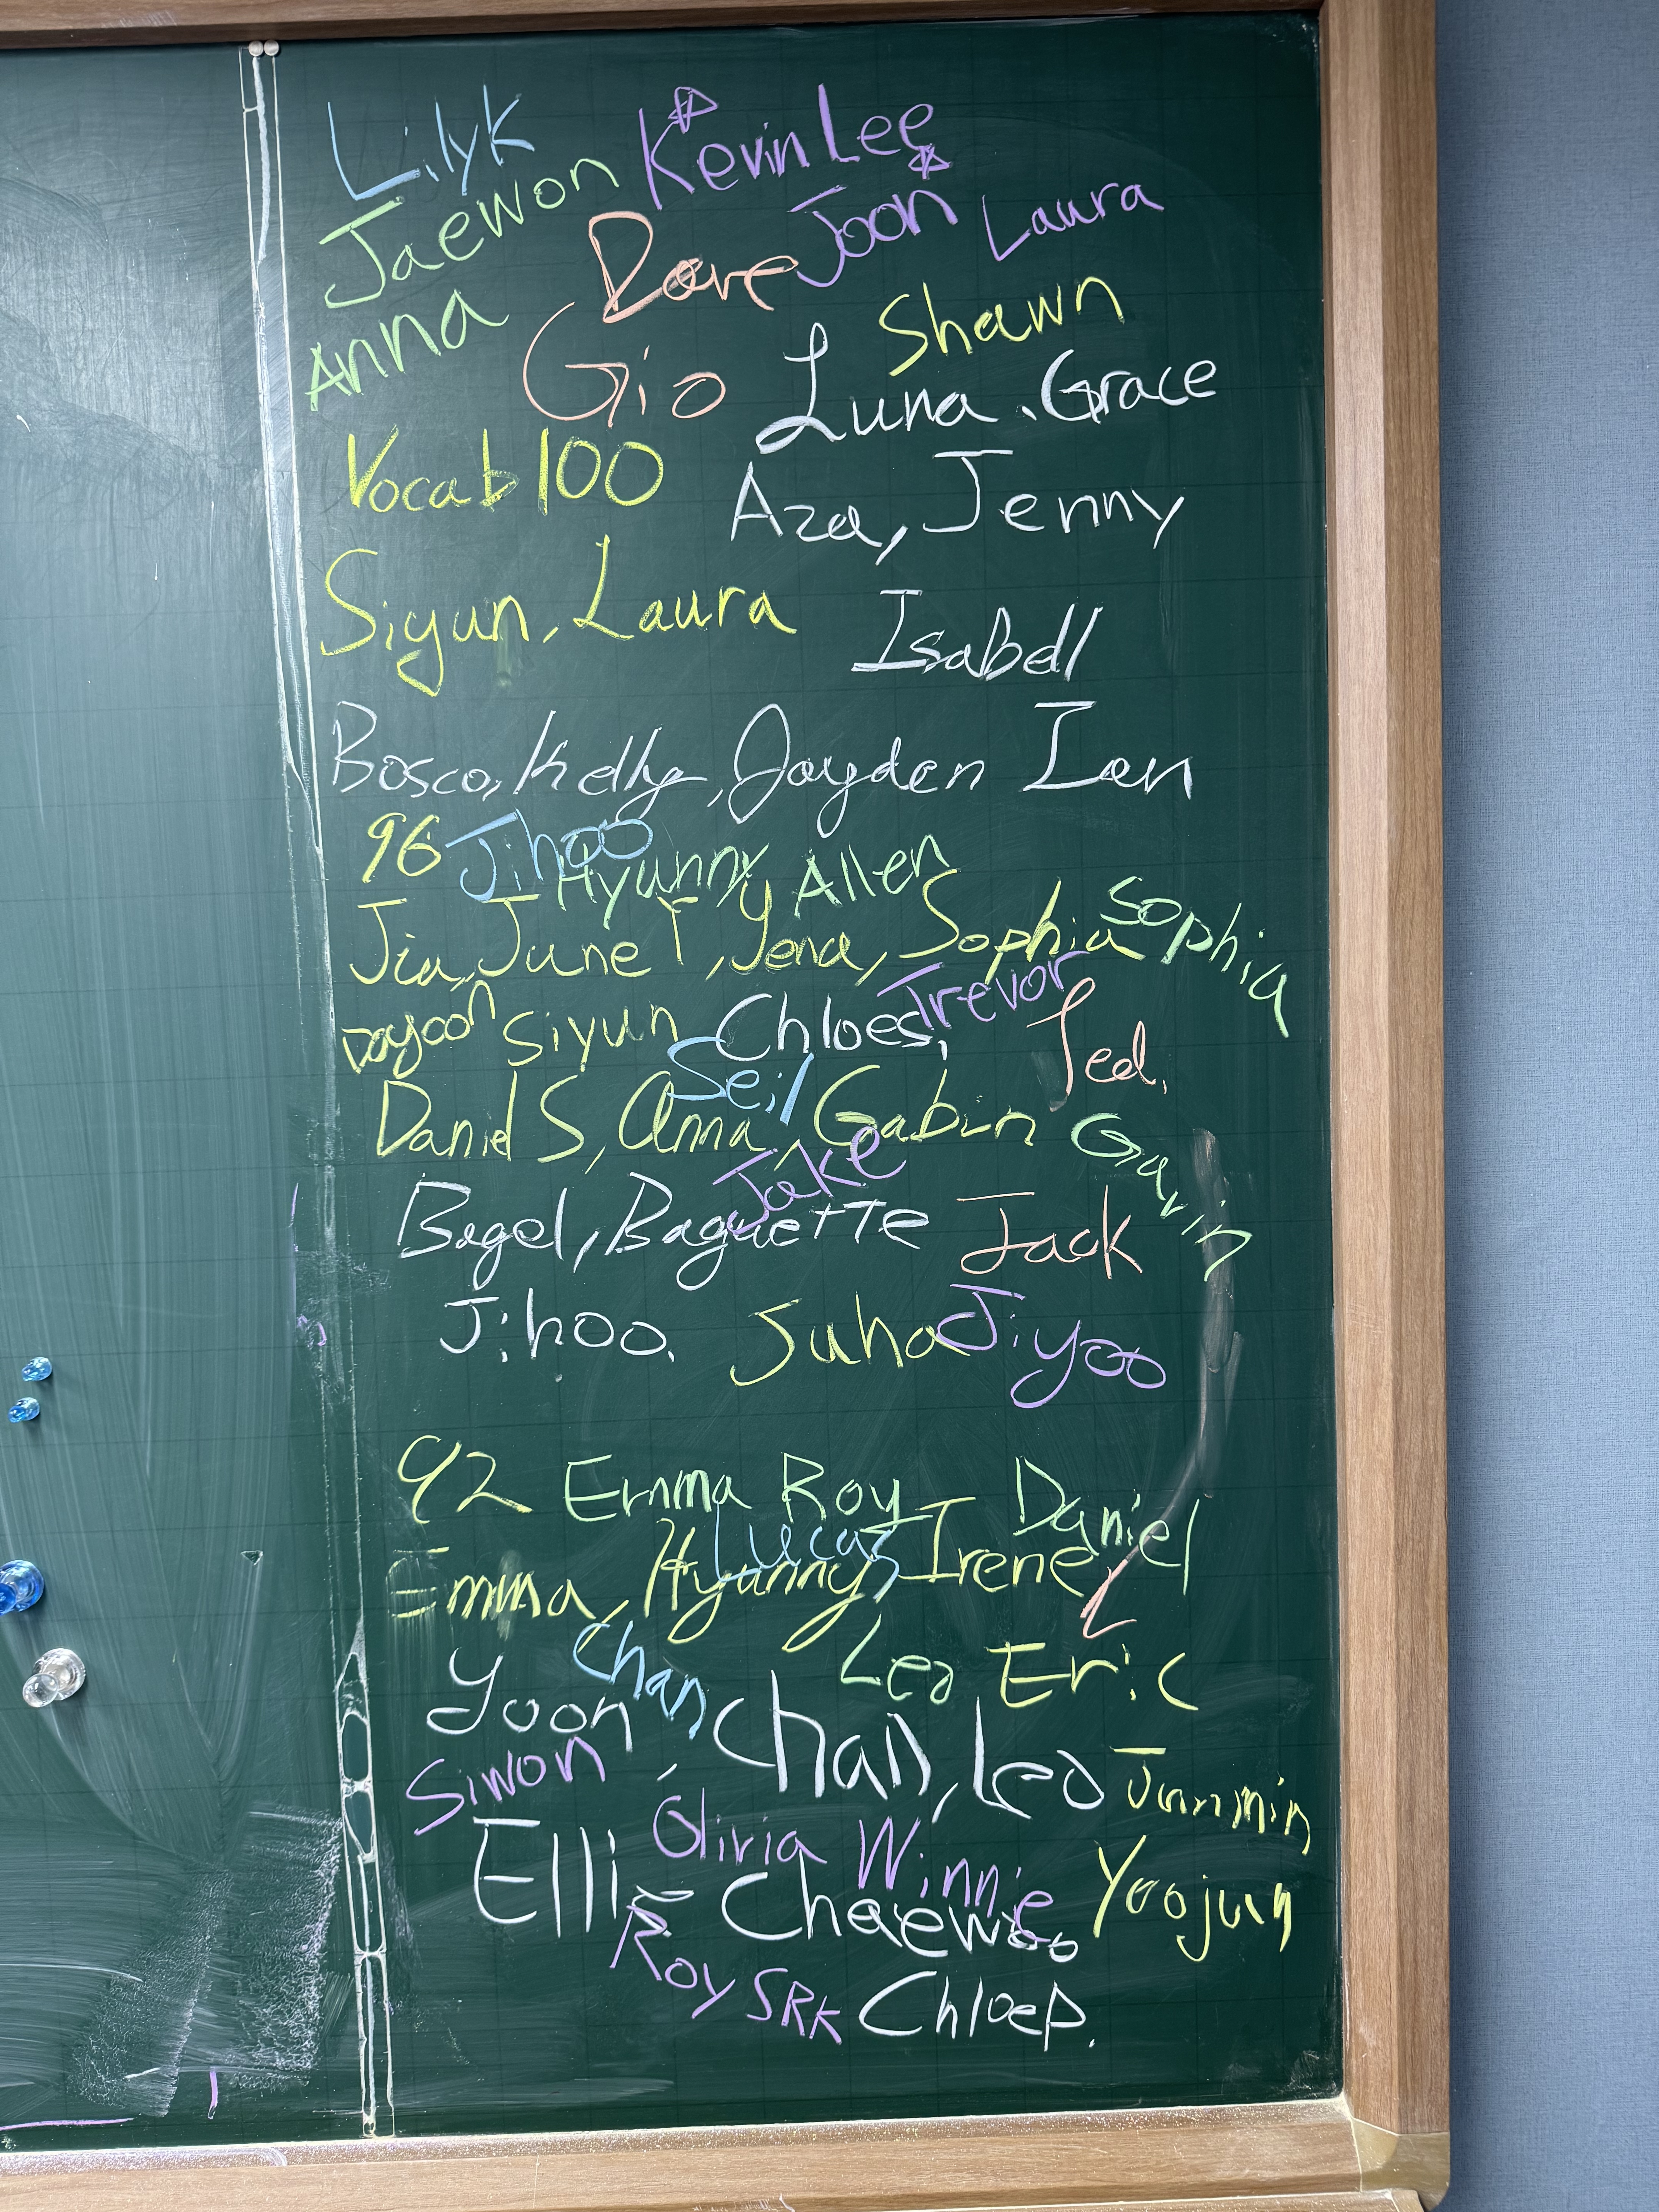 Lilyk Kevin Lee
Jaewon Dave Joon Laura
Anna Gio Shawn
Luna. Grace
Vocab 100 Aza, Jenny
Siyun, Laura Isabell
Bosco, Kelly, Jayden Ian
96 Jihoo
Hyunny Allen
Jia, June T, Yena, Sophia Sophia
Dayoon Siyun Chloes, Trevor Ted,
Seil
Daniel S, Anna, Gabin Gavin
Jake
Bagel, Baguette Jack
Jihoo. Suha Jiyoo
92 Emma Roy Daniel
Lucas
Emma, Hyunny, Irene
Yoon Chan Leo Eric
Siwon, Chan, Leo Junmin
Olivia Winnie
Ellie Chaewoo Yoojun
Roy SRK Chloe P.